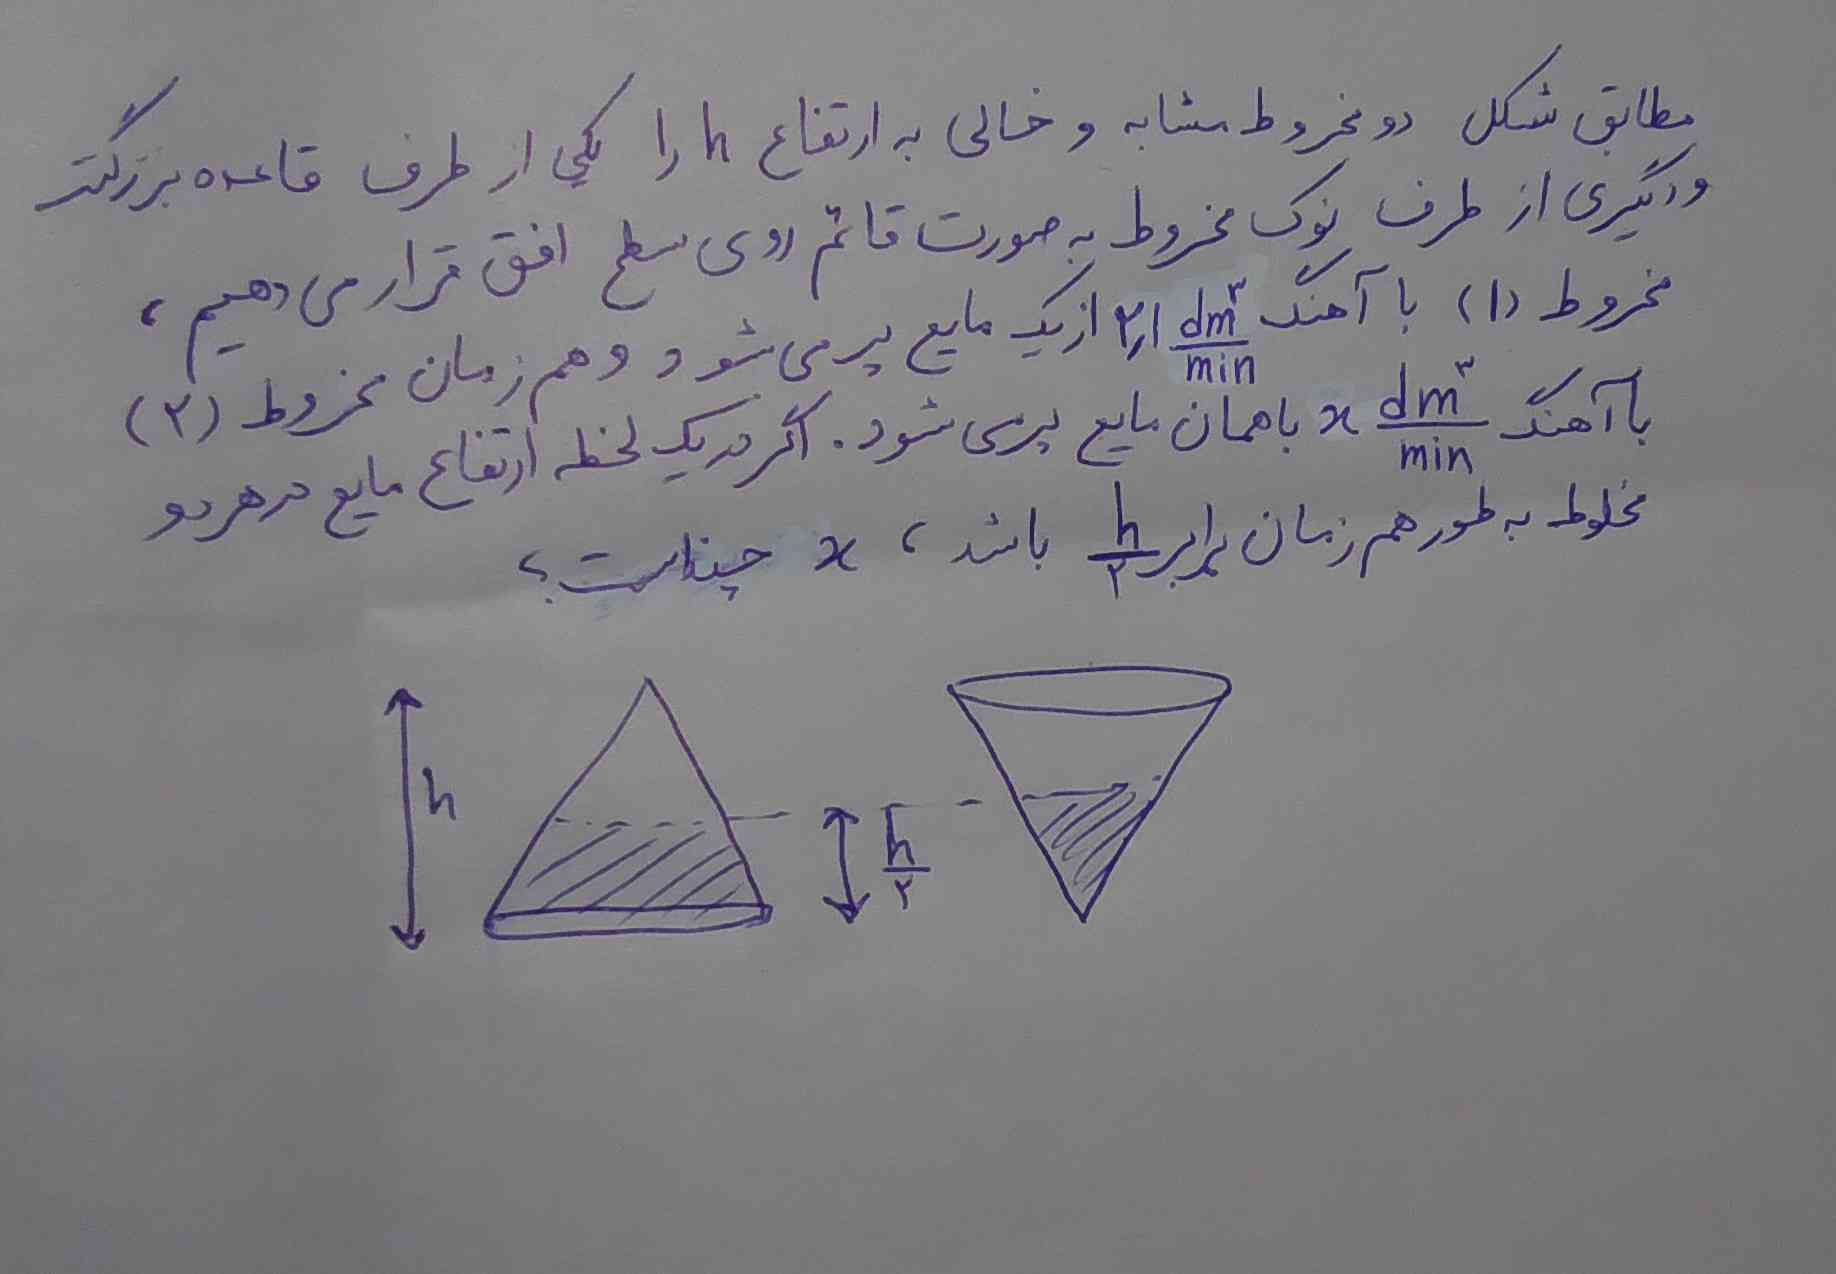 مطابق شکل دو مخروط مشابه و خالی به ارتفاع h را یکی از طرف قاعده بزرگتر
و دیگری از طرف نوک مخروط به صورت قائم روی سطح افق قرار می دهیم،
مخروط (۱) با آهنگ ۲٫۱ dm³/min از یک مایع پر می شود و هم زمان مخروط (۲)
با آهنگ x dm³/min با همان مایع پر می شود. اگر در یک لحظه ارتفاع مایع در هر دو
مخلوط به طور هم زمان برابر h/۲ باشد، x چند است؟
h
h/۲